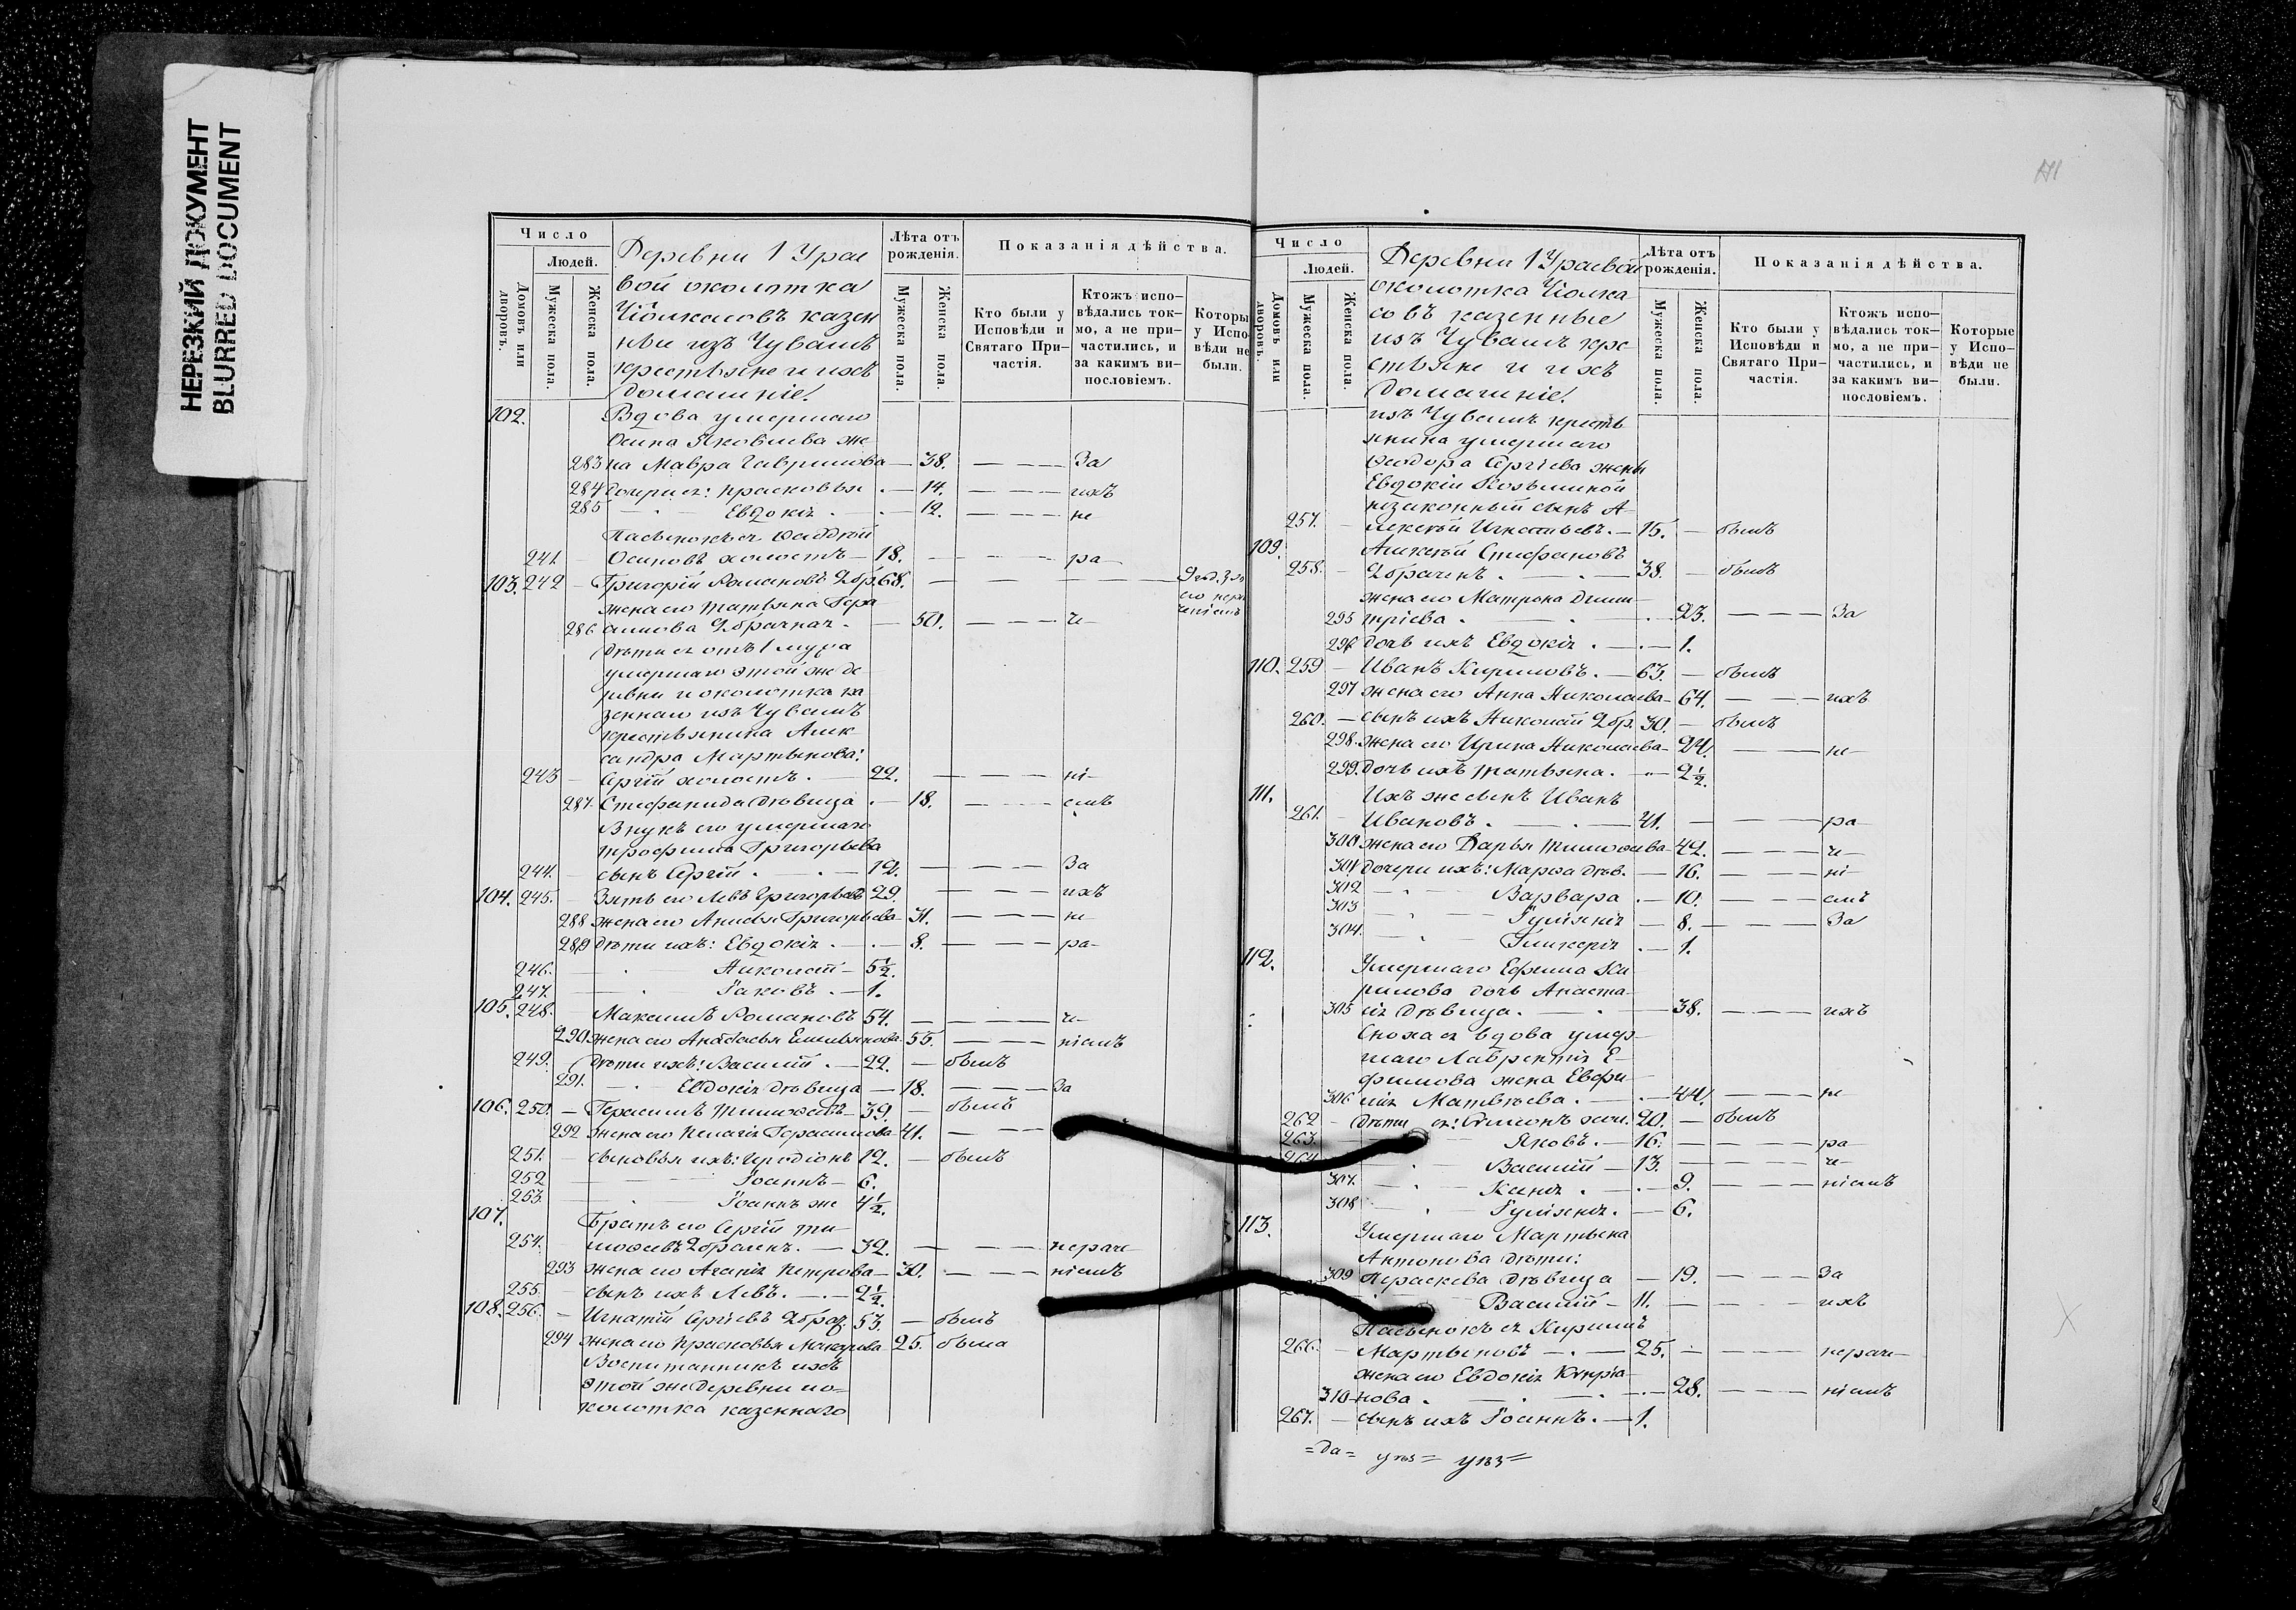 НЕРЕЗКИЙ ДОКУМЕНТ
BLURRED DOCUMENT
Число
Людей.
Домовъ или дворовъ.
Мужеска пола.
Женска пола.
Деревни 1 Урае
вой околотка
казен
ные изъ Чувашъ
крестьяне и ихъ
домашніе!
Лѣта отъ рожденія.
Мужеска пола.
Женска пола.
Показанія дѣйства.
Кто были у Исповѣди и Святаго При-частія.
Ктожъ испо-вѣдались ток-мо, а не при-частились, и за какимъ ви-нословіемъ.
Которы у Испо вѣди не были.
102. Вдова умершаго
Осипа Яковлева же
283 на Мавра Гаврилова — 38. — — — За
284 дочери ея: Прасковья . — 14. — — — ихъ
285 — Евдокія . — . — 12. — — — не
Пасынокъ ея
241. Осиповъ холостъ — 18. — — — ра
103. 242 — Григорій Романовъ 2 бр. 68. — — —
жена его Татьяна Гера
286 симова 2 брачная . — 50. — — — че
дѣти ея отъ 1 мужа
умершаго этой же де
ревни и околотка ка
зеннаго изъ Чувашъ
крестьянина Алек
сандра Мартынова:
243 — Сергій холостъ . — 22. — — — ні
287. Стефанида дѣвица . — 18. — — — емъ
Внукъ его умершаго
Трофима Григорьева
244. — сынъ Сергій . — 12. — — — За
104. 245. — Зять его Левъ Григорьевъ 29. — — — ихъ
288 жена его Анисья Григорьева — 31. — — — не
289 дѣти ихъ: Евдокія . — . — 8. — — — ра
246. — Николай — 5½.
247. — Іаковъ . — 1.
105. 248. — Максимъ Романовъ 54. — — — че
290 жена его Анастасья Емельянова 55. — — — ніемъ
249. дѣти ихъ: Василій . — 22. — былъ
291. — Евдокія дѣвица — 18. — — — За
106. 250. — Герасимъ Тимоѳеевъ — 39. — былъ
292 жена его Пелагія Герасимова 41. — —
251. — сыновья ихъ: Иродіонъ 12. — былъ
252 — Іоаннъ — 6.
253. — Іоаннъ же 4½.
107. Братъ его Сергій Ти
254. — моѳеевъ 2 браченъ. — 32. — — — нераче
293 жена его Агаѳія Петрова — 30. — — — ніемъ
255. — сынъ ихъ Левъ. — 2½.
108. 256. — Игнатій Сергіевъ 2 брач. 53. — былъ
294 жена его Прасковья Макарова 25. была
Воспитанникъ ихъ
этой же деревни и о-
колотка казеннаго
171
Число
Людей.
Домовъ или дворовъ.
Мужеска пола.
Женска пола.
Деревни 1 Ураевой
околотка
казенные
изъ Чувашъ кре
стьяне и ихъ
домашніе!
Лѣта отъ рожденія.
Мужеска пола.
Женска пола.
Показанія дѣйства.
Кто были у Исповѣди и Святаго При-частія.
Ктожъ испо-вѣдались ток-мо, а не при-частились, и за какимъ ви-нословіемъ.
Которые у Испо-вѣди не были.
изъ Чувашъ кресть
янина умершаго
Ѳеодора Сергіева жены
Евдокіи Козьминой
незаконный сынъ А
257. лексѣй Игнатьевъ. — 15. — былъ
109. Алексѣй Стефановъ
258. 2 браченъ . — 38. — былъ
жена его Матрона Дими
295 тріева . — 23. — — — За
296 дочь ихъ Евдокія . — 1.
110. 259 — Иванъ Кириловъ. — 63. — былъ
297 жена его Анна Николаева — 64. — — — ихъ
260. — сынъ ихъ Николай 2 бр. 30. — былъ
298. жена его Ирина Николаева — 24. — — — не
299. дочь ихъ Татьяна. — 2½.
111. Ихъ же сынъ Иванъ
261. Ивановъ . — 41. — — — ра
300 жена его Дарья Тимоѳеева — 42. — — — че
301 дочери ихъ: Марѳа дѣв. — 16. — — — ні
302 — Варвара . — 10. — — — емъ
303 — Гуліянія — 8. — — — За
304. — Гликерія . — 1.
112. Умершаго Ефима Ки
рилова дочь Анаста
305 сія дѣвица. — 38. — — — ихъ
Сноха ея вдова умер
шаго Лаврентія Е-
фимова жена Евфи
306. мія Матвѣева. — 44. — — — не
262 — дѣти ея: Симеонъ хол. 20. — былъ
263. — Яковъ. — 16. — — — ра
264 — Василій — 13. — — — че
307. — Ксенія . — 9. — — — ніемъ
308 — Гуліянія. — 6.
113. Умершаго Мартына
Антонова дѣти:
309 Параскева дѣвица — 19. — — — За
Василій — 11. — — — ихъ
Пасынокъ ея Кирилъ
266. — Мартыновъ — 25. — — — нераче
жена его Евдокія Кипріа
310 нова . — 28. — — — ніемъ
267. — сынъ ихъ Іоаннъ. — 1.
= да =